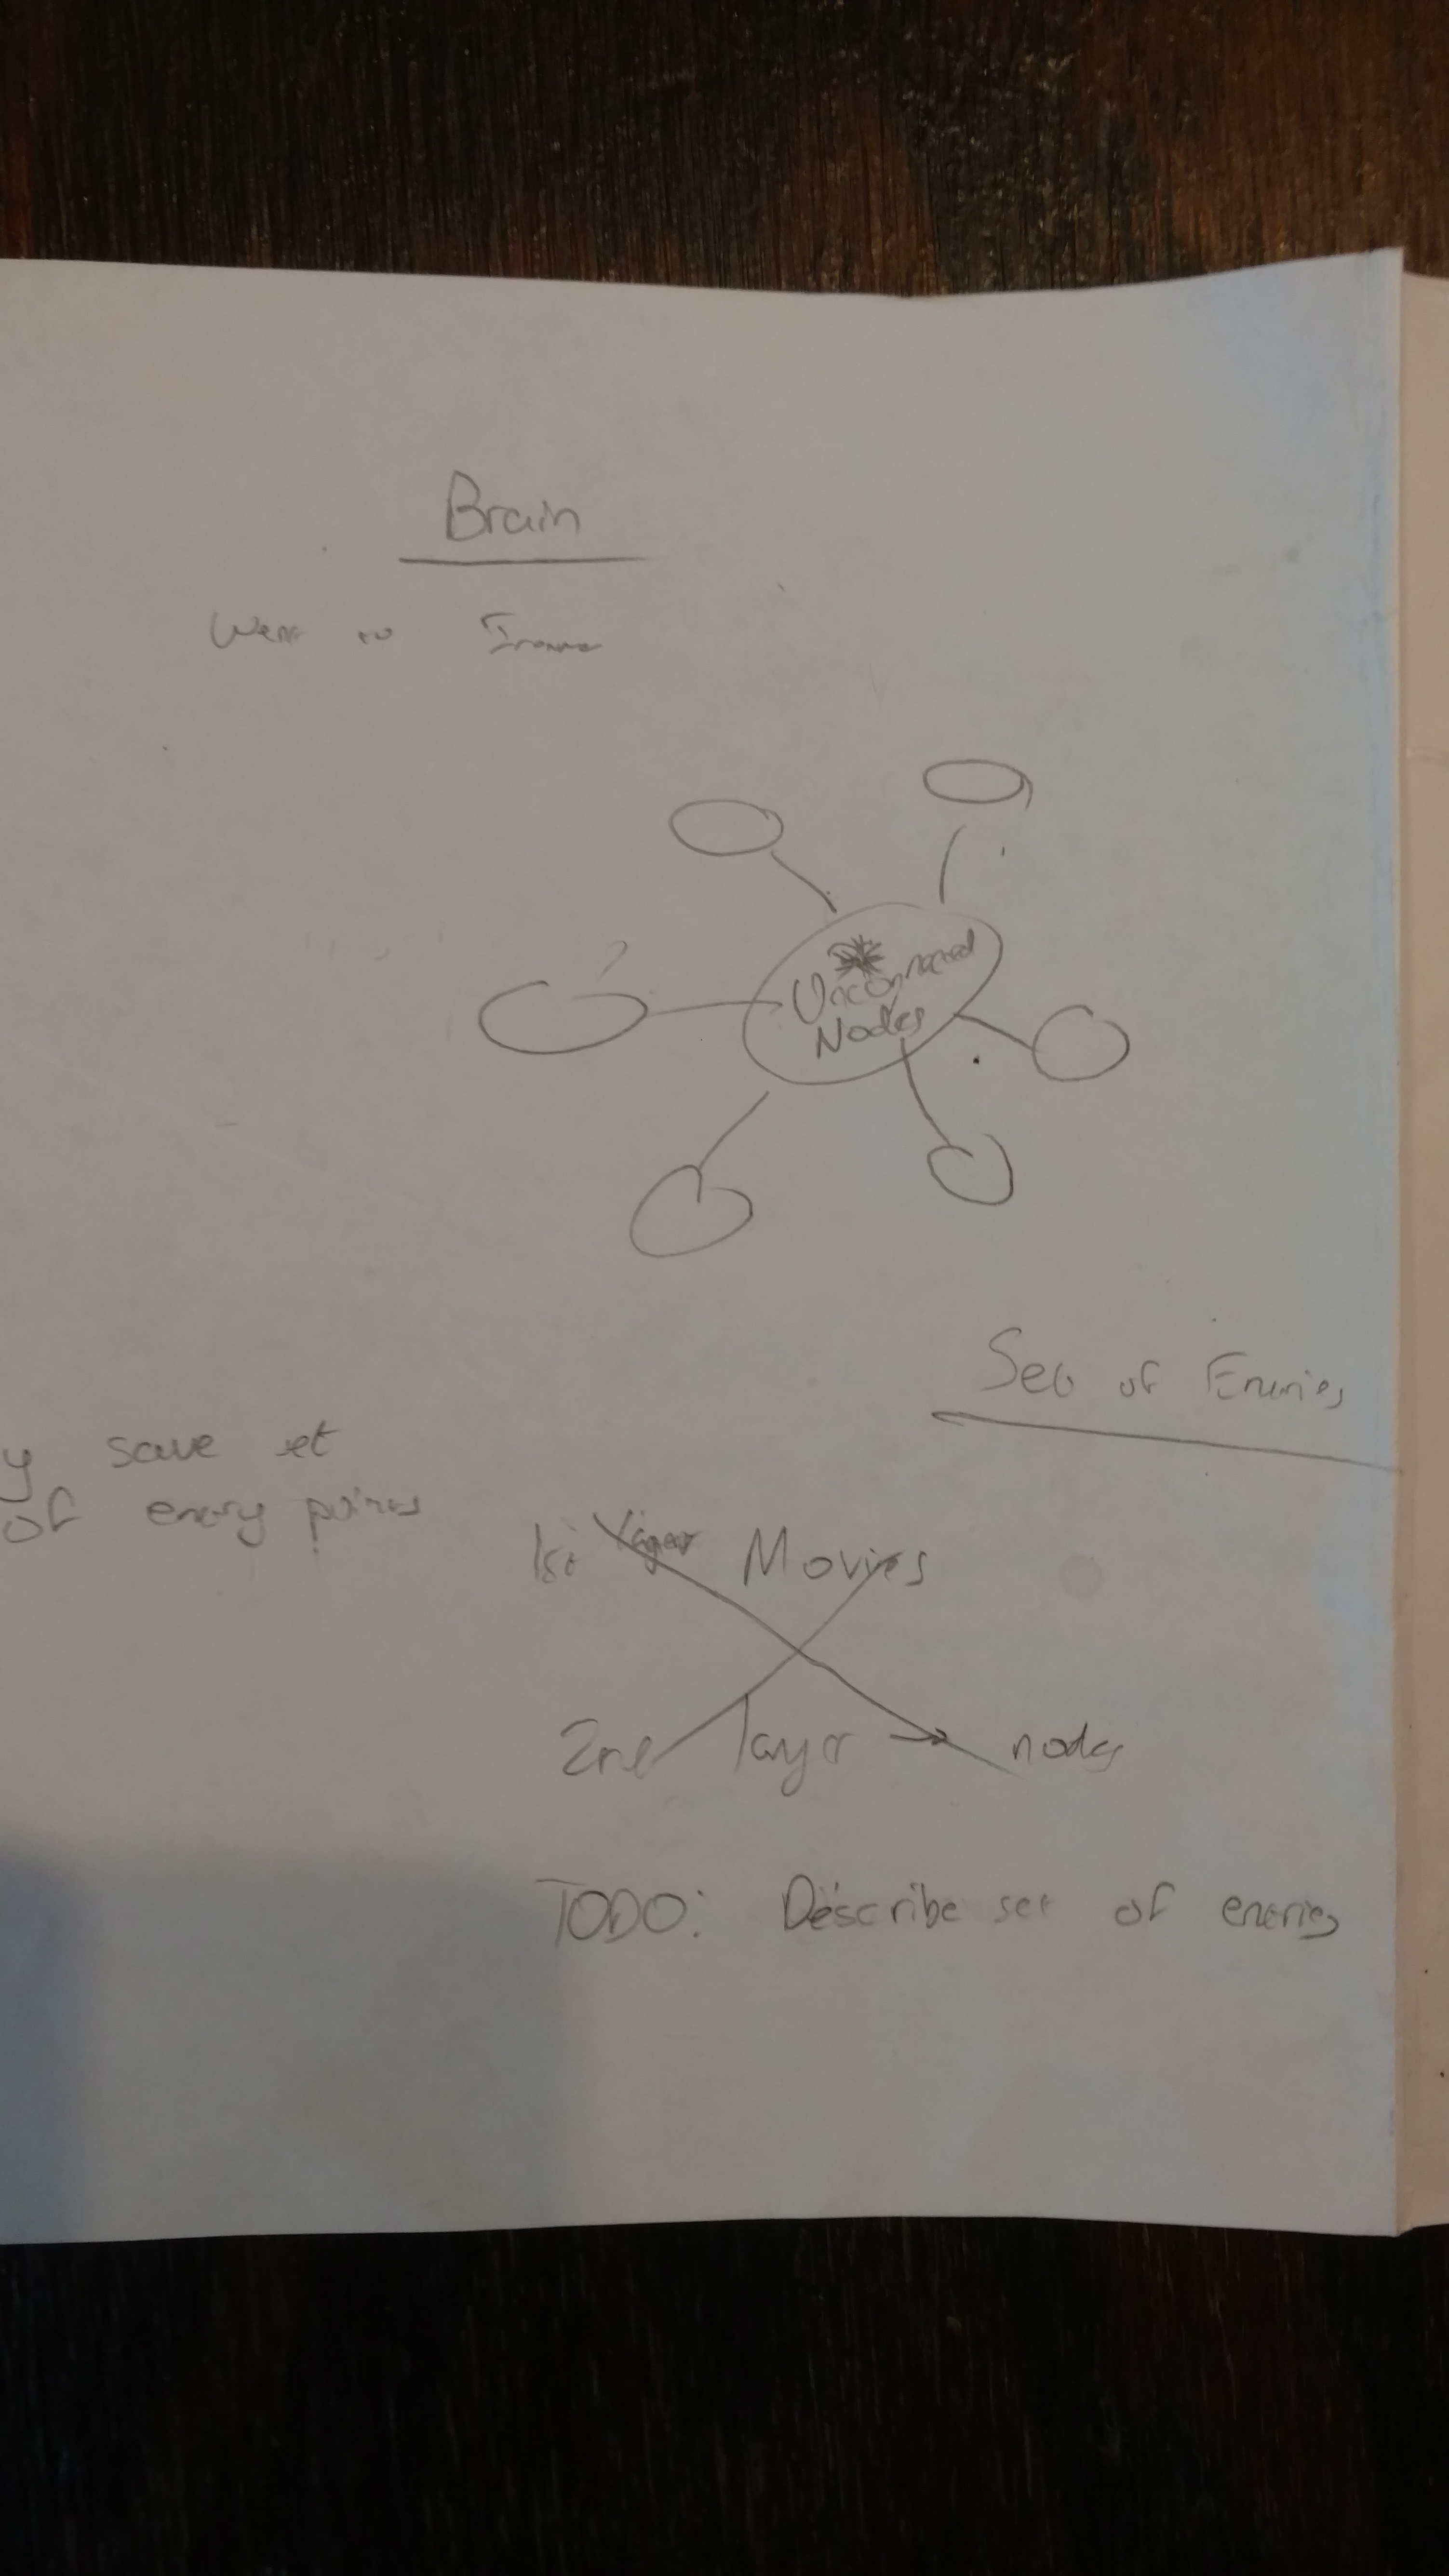 Brain
Went to
Unconnected
Nodes
Set of Entries
y save set
of entry points
1st layer Movies
2nd layer → nodes
TODO: Describe set of entries